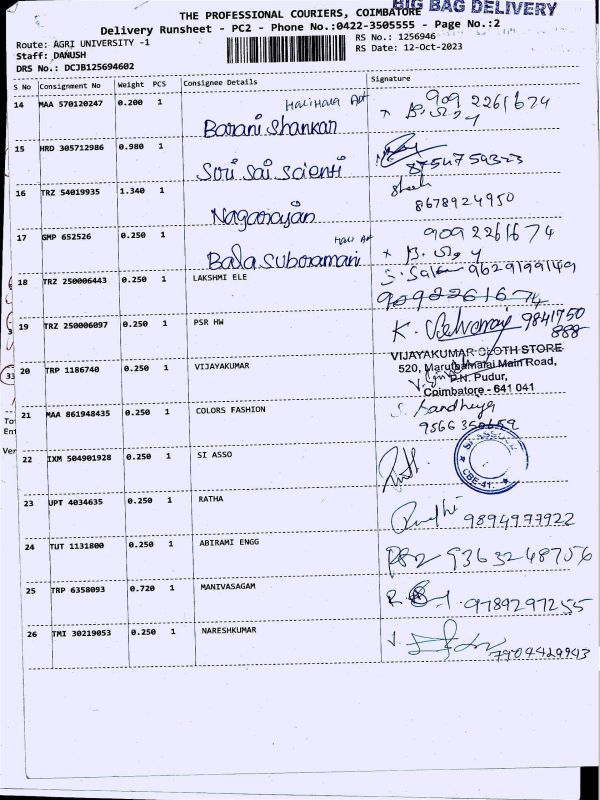 BIG BAG DELIVERY
THE PROFESSIONAL COURIERS, COIMBATORE
Delivery Runsheet - PC2 - Phone No.:0422-3505555 - Page No.:2
Route: AGRI UNIVERSITY -1
RS No.: 1256946
Staff: DANUSH
RS Date: 12-Oct-2023
DRS No.: DCJB125694602
S No Consignment No Weight PCS Consignee Details Signature
14 MAA 570120247 0.200 1 Barani Shankar 909 2261674
15 HRD 305712986 0.980 1 Sri Sai Scienti 8754759323
16 TRZ 54019935 1.340 1 Naganayan 8678924950
17 GMP 652526 0.250 1 Bala Subramani 909 2261674
18 TRZ 250006443 0.250 1 LAKSHMI ELE 9629199149
9092261674
19 TRZ 250006097 0.250 1 PSR HW K. Selvaraj 9841750
888
20 TRP 1186740 0.250 1 VIJAYAKUMAR VIJAYAKUMAR CLOTH STORE
520, Maruthamalai Main Road,
P.N. Pudur,
Coimbatore - 641 041
21 MAA 861948435 0.250 1 COLORS FASHION S. Sandhya
9566350659
22 IXM 504901928 0.250 1 SI ASSO CBE-41.
23 UPT 4034635 0.250 1 RATHA 9894977922
24 TUT 1131800 0.250 1 ABIRAMI ENGG 9363248756
25 TRP 6358093 0.720 1 MANIVASAGAM 9789297255
26 TMI 30219053 0.250 1 NARESHKUMAR 7904429943
33